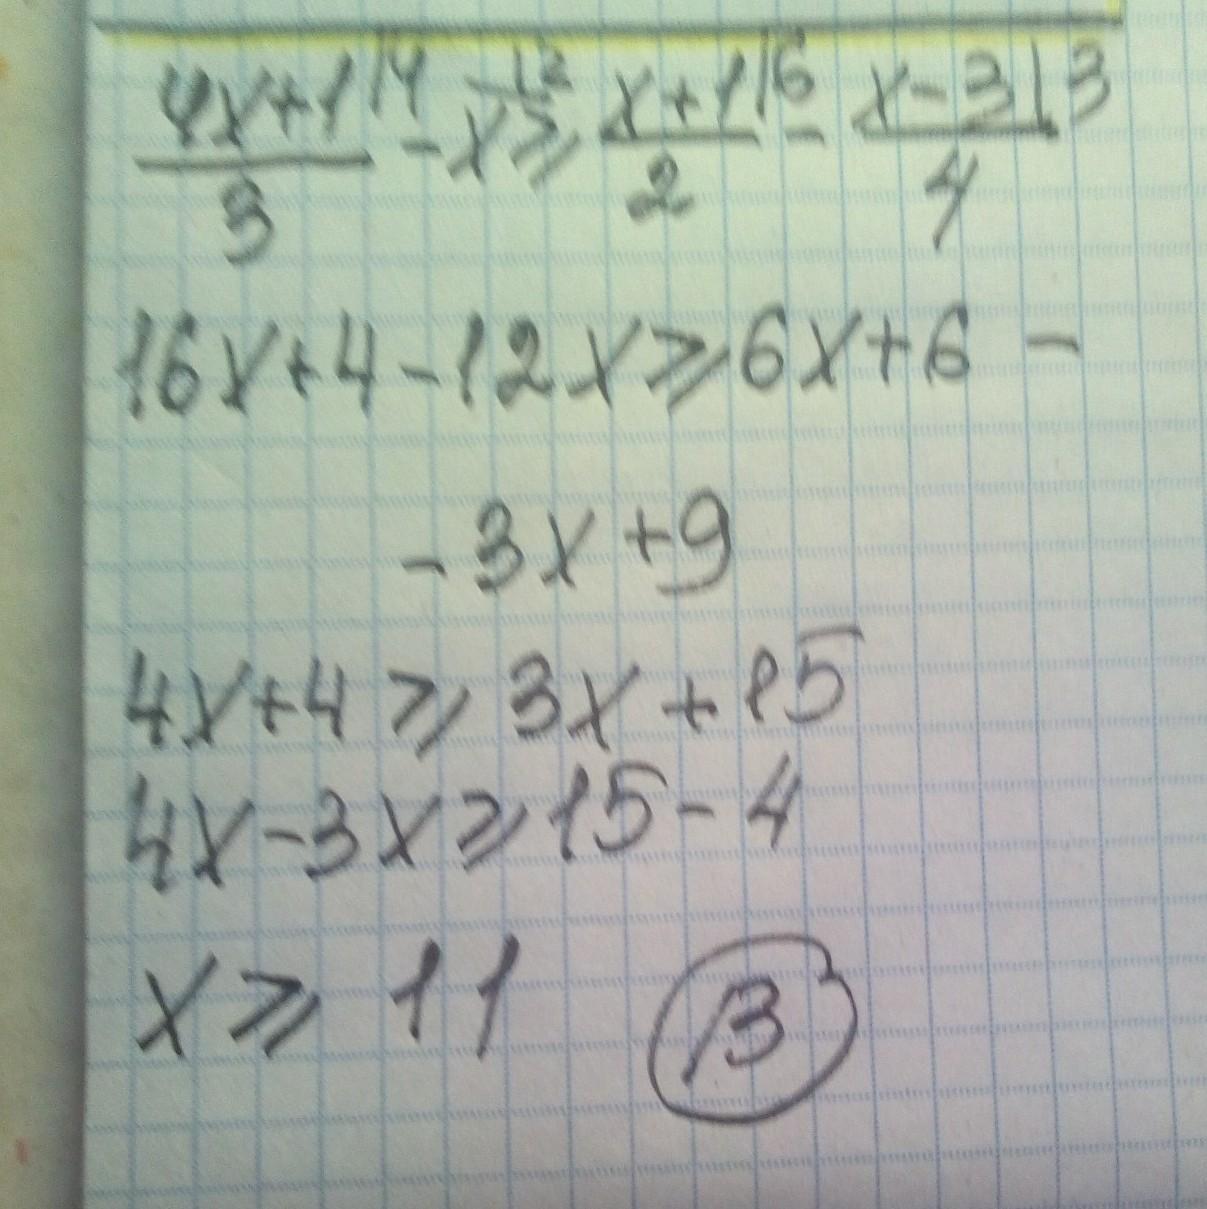 (4x+1)/3 |4 - x |12 ≥ (x+1)/2 |6 - (x-3)/4 |3
16x+4-12x≥6x+6 -
-3x+9
4x+4 ≥ 3x+15
4x-3x≥15-4
x ≥ 11 B